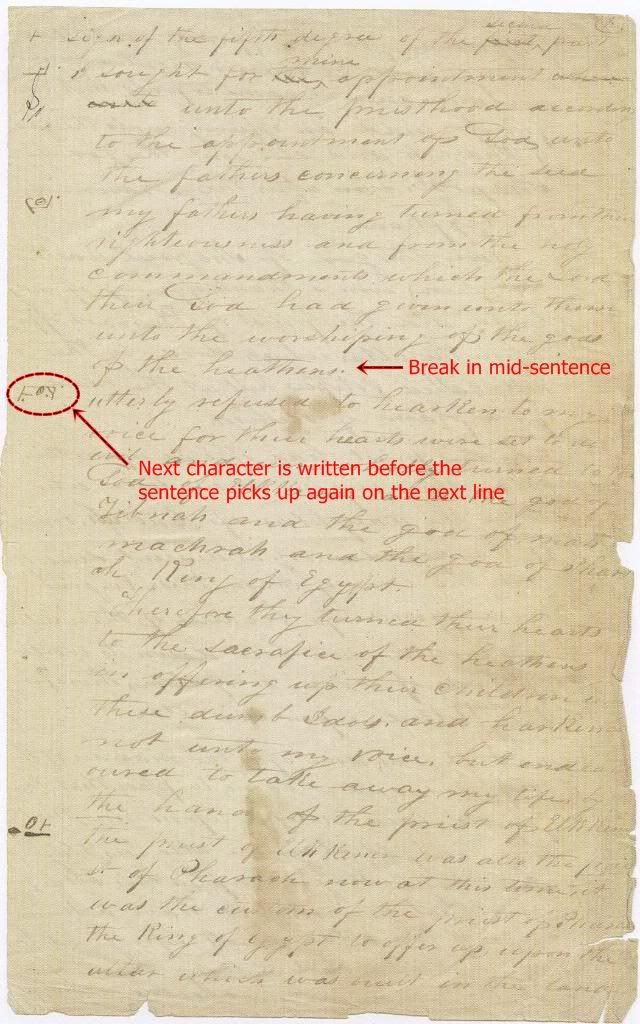 second
sign of the fifth degree of the first part
mine
I sought for the appointment
unto the priesthood according
to the appointment of God unto
the fathers concerning the seed
my fathers having turned from their
righteousness and from the holy
commandments which the Lord
their God had given unto them
unto the worshiping of the gods
of the heathens.
Break in mid-sentence
utterly refused to hearken to my
voice for their hearts were set to do
evil and turned to
God of and the god of
Zibnah and the god of mah
machrah and the god of Phar
oh King of Egypt.
Next character is written before the
sentence picks up again on the next line
Therefore they turned their hearts
to the sacrafice of the heathens
in offering up their children
these dumb Idols. and harken
not unto my voice. but endea
oured to take away my life by
the hand of the priest of Elkken
The priest of Elkkener was also the prie
st of Pharaoh now at this time it
was the custom of the priest of Phara
the King of Egypt to offer up upon the
alter which was built in the land